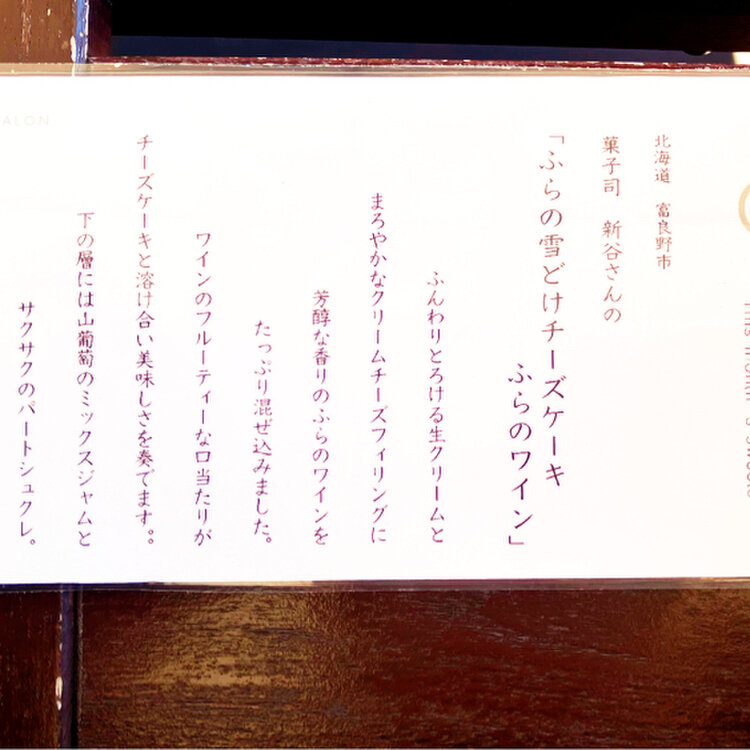 北海道 富良野市
菓子司 新谷さんの
「ふらの雪どけチーズケーキ
ふらのワイン」
ふんわりとろける生クリームと
まろやかなクリームチーズフィリングに
芳醇な香りのふらのワインを
たっぷり混ぜ込みました。
ワインのフルーティーな口当たりが
チーズケーキと溶け合い美味しさを奏でます。。
下の層には山葡萄のミックスジャムと
サクサクのパートシュクレ。
ALON